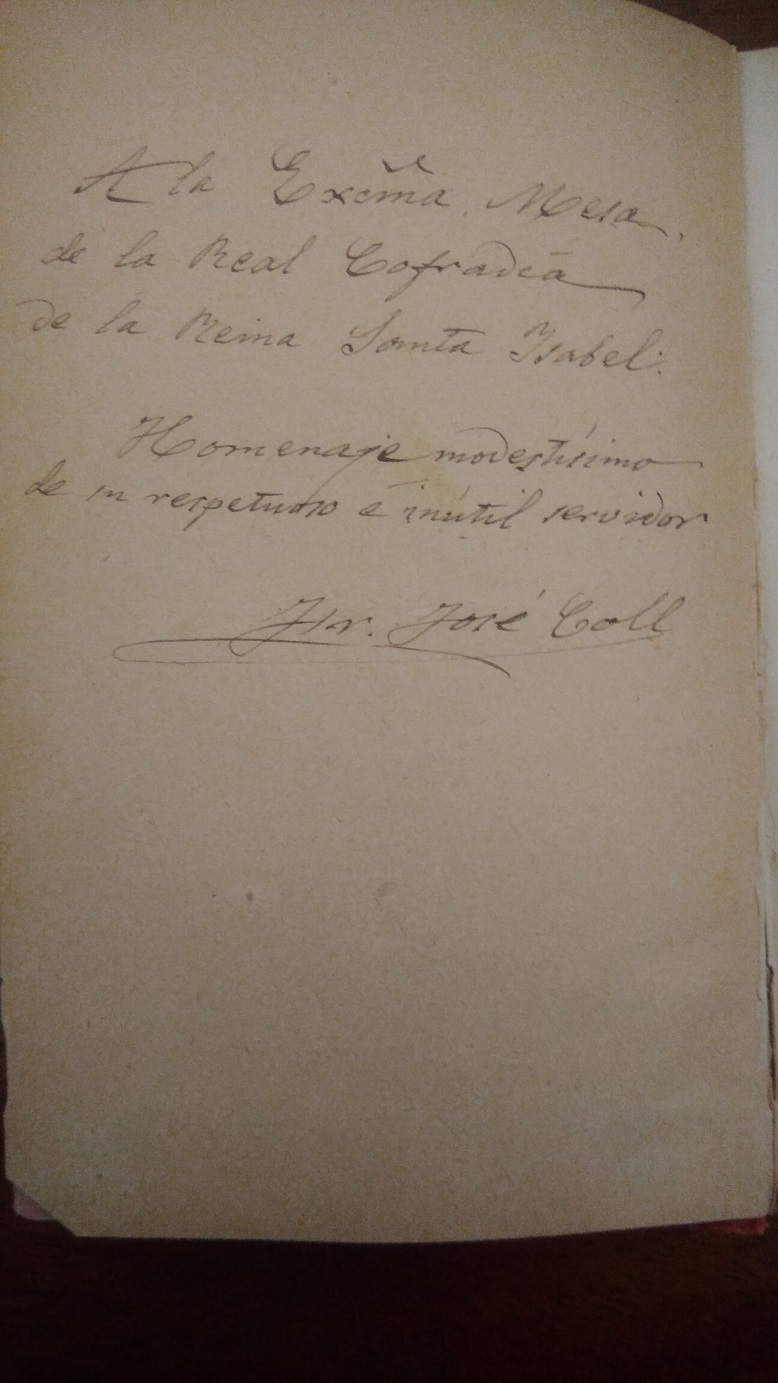 A la Excm̃a. Mesa
de la Real Cofradía
de la Reina Santa Isabel:
Homenaje modestísimo
de su respetuoso é inútil servidor
Fr. José Coll